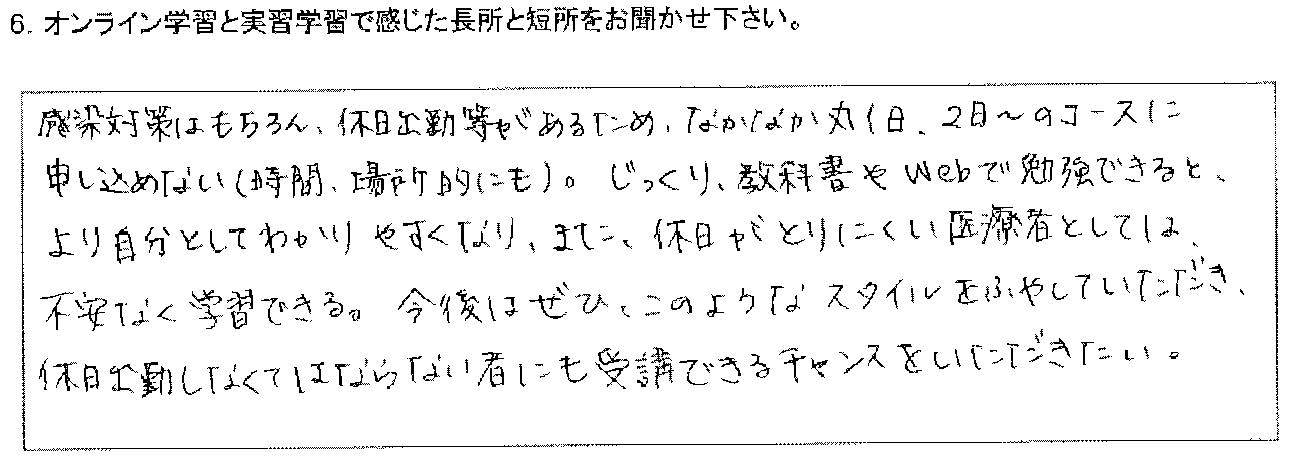 6. オンライン学習と実習学習で感じた長所と短所をお聞かせ下さい。
感染対策はもちろん、休日出勤等があるため、なかなか丸1日、2日〜のコースに
申し込めない(時間、場所的にも)。じっくり、教科書やWebで勉強できると、
より自分としてわかりやすくなり、また、休日がとりにくい医療者としては、
不安なく学習できる。今後はぜひ、このようなスタイルをふやしていただき、
休日出勤しなくてはならない者にも受講できるチャンスをいただきたい。